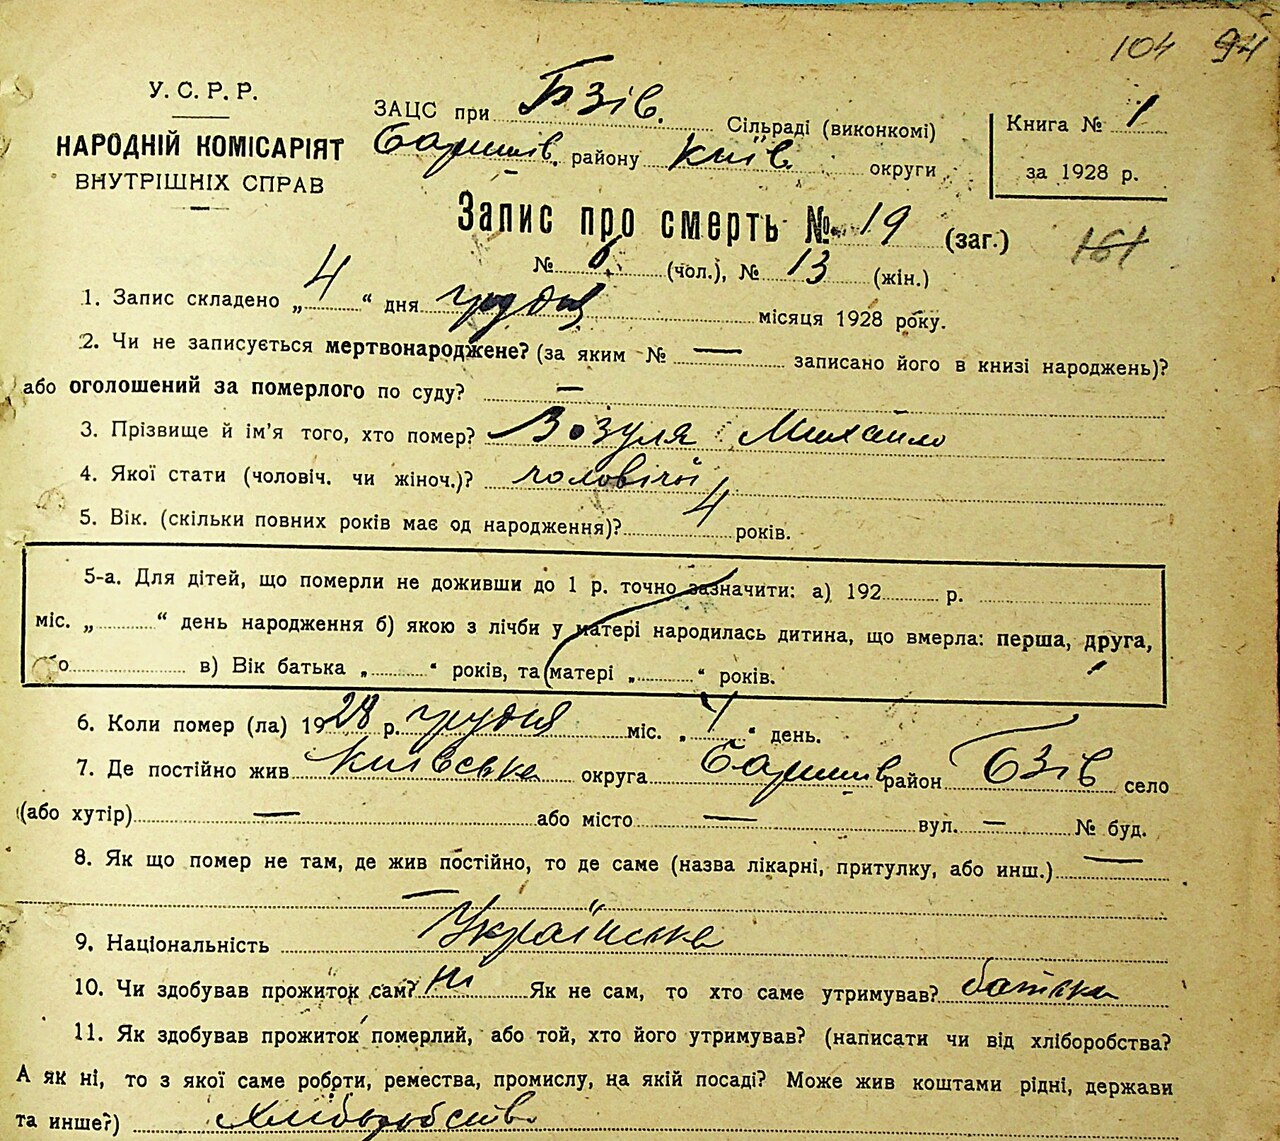 104 94
У. С. Р. Р.
НАРОДНІЙ КОМІСАРІЯТ
ВНУТРІШНІХ СПРАВ
ЗАЦС при Бзів. Сільраді (виконкомі)
Баришів. району Київ. округи
Книга № 1
за 1928 р.
Запис про смерть № 19 (заг.)
№ 6 (чол.), № 13 (жін.)
1. Запис складено „4“ дня грудня місяця 1928 року.
2. Чи не записується мертвонароджене? (за яким № — записано його в книзі народжень)?
або оголошений за померлого по суду? —
3. Прізвище й ім'я того, хто помер? Зозуля Михайло
4. Якої стати (чоловіч. чи жіноч.)? чоловічої
5. Вік. (скільки повних років має од народження)? 4 років.
5-а. Для дітей, що померли не доживши до 1 р. точно зазначити: а) 192 р.
міс. „ “ день народження б) якою з лічби у матері народилась дитина, що вмерла: перша, друга,
бо в) Вік батька „ “ років, та матері „ “ років.
6. Коли помер (ла) 1928 р. грудня міс. „4“ день.
7. Де постійно жив Київська округа Баришів район Бзів село
(або хутір) — або місто — вул. — № буд.
8. Як що помер не там, де жив постійно, то де саме (назва лікарні, притулку, або инш.) —
9. Національність Українська
10. Чи здобував прожиток сам? Ні Як не сам, то хто саме утримував? батьки
11. Як здобував прожиток померлий, або той, хто його утримував? (написати чи від хліборобства?
А як ні, то з якої саме роботи, ремества, промислу, на якій посаді? Може жив коштами рідні, держави
та инше?) Хліборобство